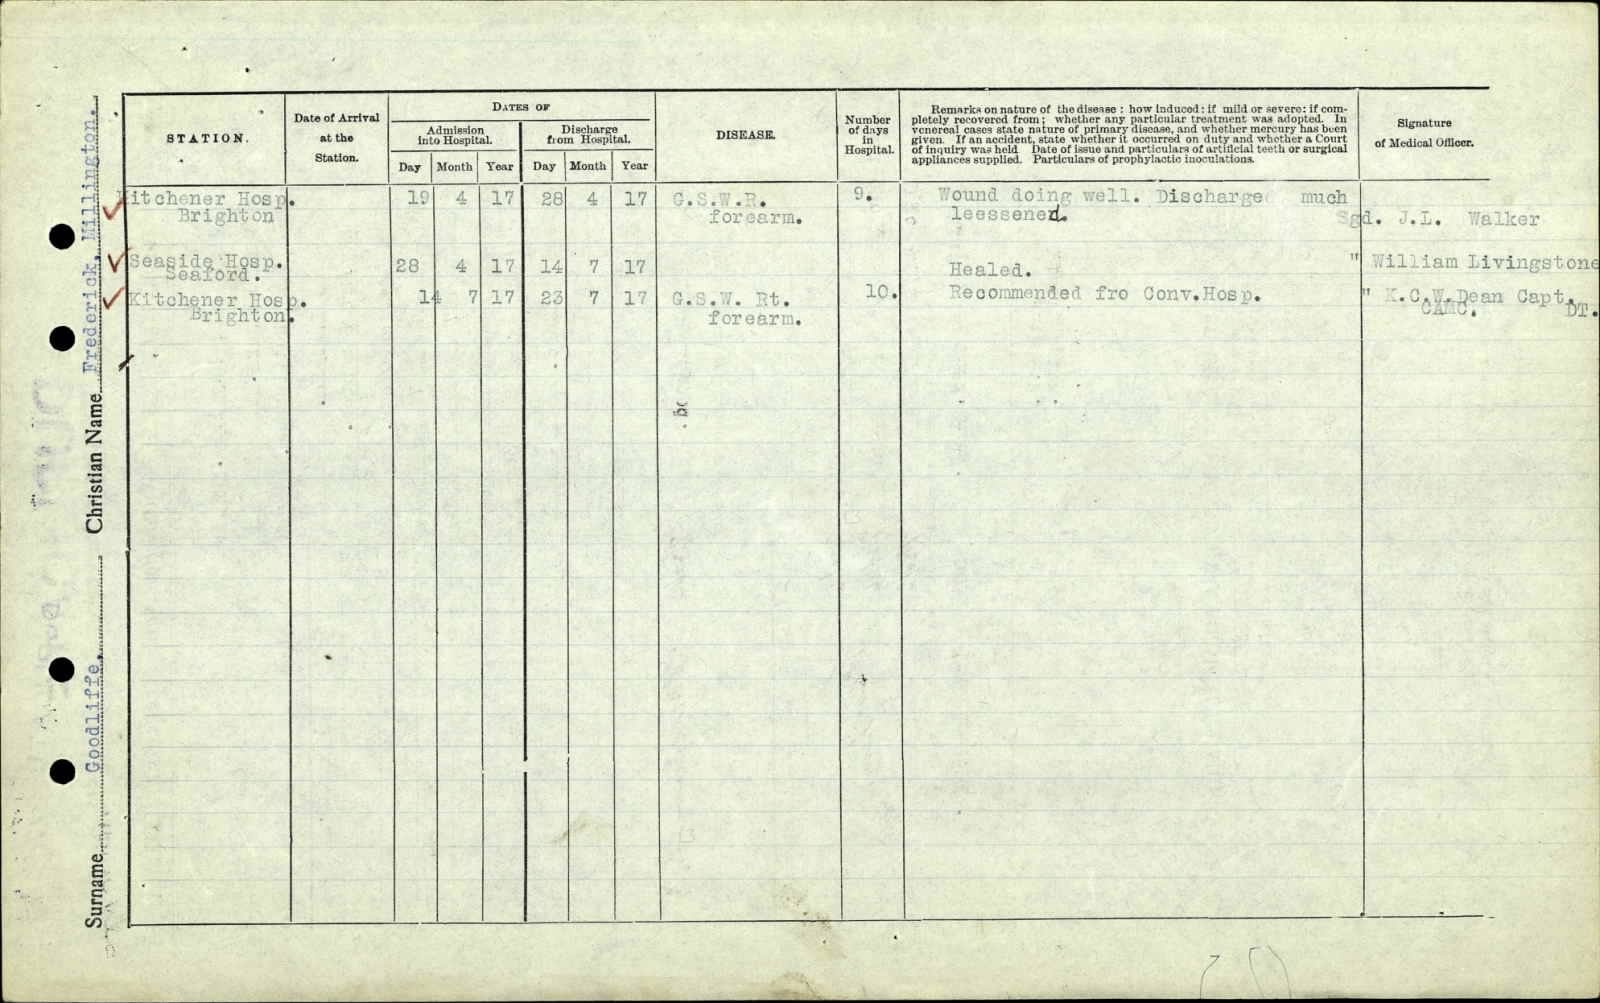 Surname Goodliffe, Christian Name Frederick, Millington.
STATION.
Date of Arrival
at the
Station.
DATES OF
Admission
into Hospital.
Discharge
from Hospital.
Day Month Year Day Month Year
DISEASE.
Number
of days
in
Hospital.
Remarks on nature of the disease: how induced: if mild or severe: if com-
pletely recovered from; whether any particular treatment was adopted. In
venereal cases state nature of primary disease, and whether mercury has been
given. If an accident, state whether it occurred on duty and whether a Court
of inquiry was held Date of issue and particulars of artificial teeth or surgical
appliances supplied. Particulars of prophylactic inoculations.
Signature
of Medical Officer.
Kitchener Hosp. 19 4 17 28 4 17 G.S.W.R. 9. Wound doing well. Discharge much
Brighton forearm. leessened. Sgd. J.L. Walker
Seaside Hosp. 28 4 17 14 7 17 Healed. " William Livingstone
Seaford.
Kitchener Hosp. 14 7 17 23 7 17 G.S.W. Rt. 10. Recommended fro Conv.Hosp. " K.C.W.Dean Capt.
Brighton. forearm. CAMC. DT.